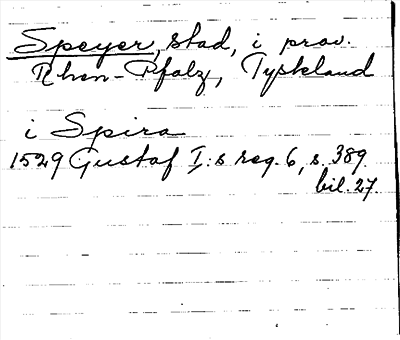 Speyer, stad, i prov.
Rhen-Pfalz, Tyskland
i Spira
1529 Gustaf I:s reg. 6, s. 389.
bil. 27.